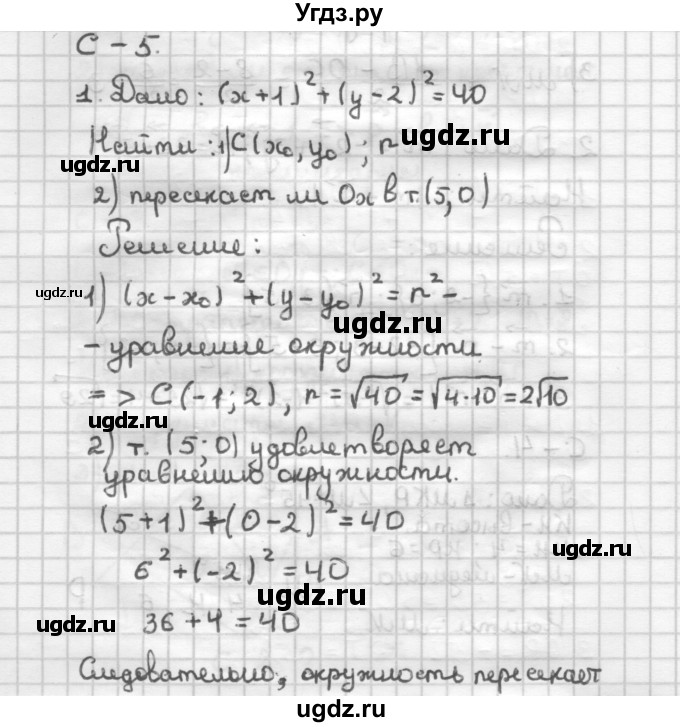 Угдз.ру
С – 5.
1. Дано: (x+1)² + (y–2)² = 40
Найти: 1) C(x₀, y₀); r
ugdz.ru ugdz.ru
2) пересекает ли Ox в т. (5,0)
Решение:
ugdz.ru 1) (x–x₀)² + (y–y₀)² = r² –
ugdz.ru
– уравнение окружности
=> C(-1; 2), r = √40 = √4·10 = 2√10
ugdz.ru
2) т. (5; 0) удовлетворяет
уравнению окружности.
(5+1)² + (0–2)² = 40
ugdz.ru
6² + (–2)² = 40
ugdz.ru
36 + 4 = 40
ugdz.ru
Следовательно, окружность пересекает
ugdz.ru ugdz.ru